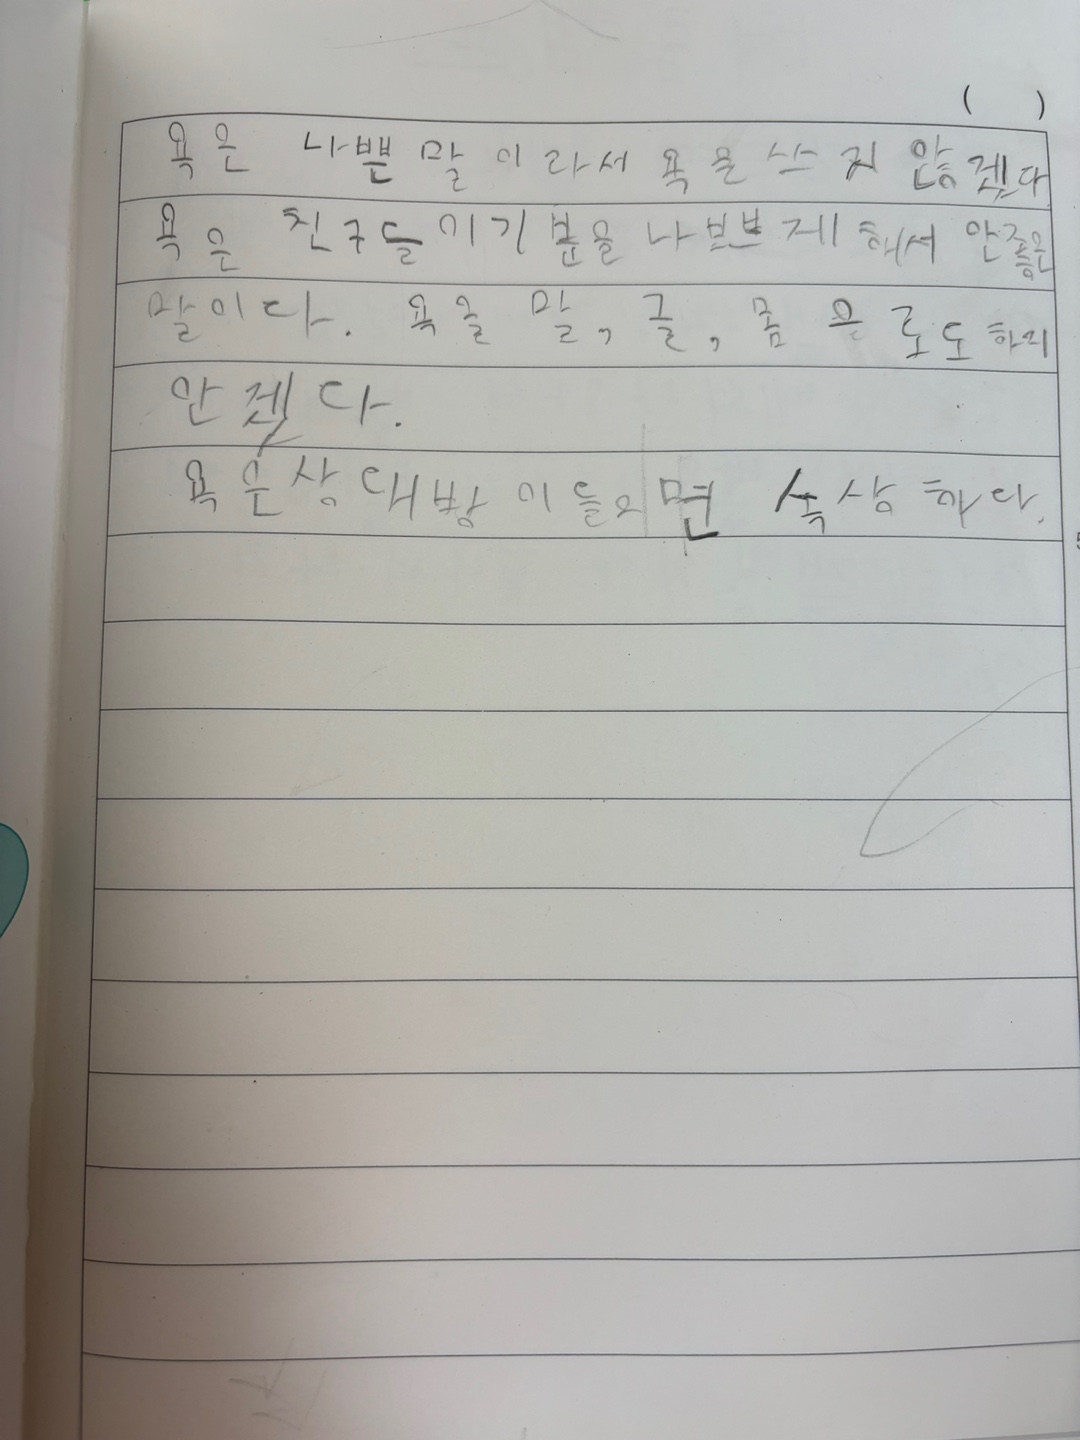 ( )
욕은 나쁜 말이라서 욕을 쓰지 않겠다
욕은 친구들이기분을 나쁘게 해서 안좋은
말이다. 욕을 말, 글, 몸 으로도하지
안겠다.
욕은상대방이들으면 속상하다.